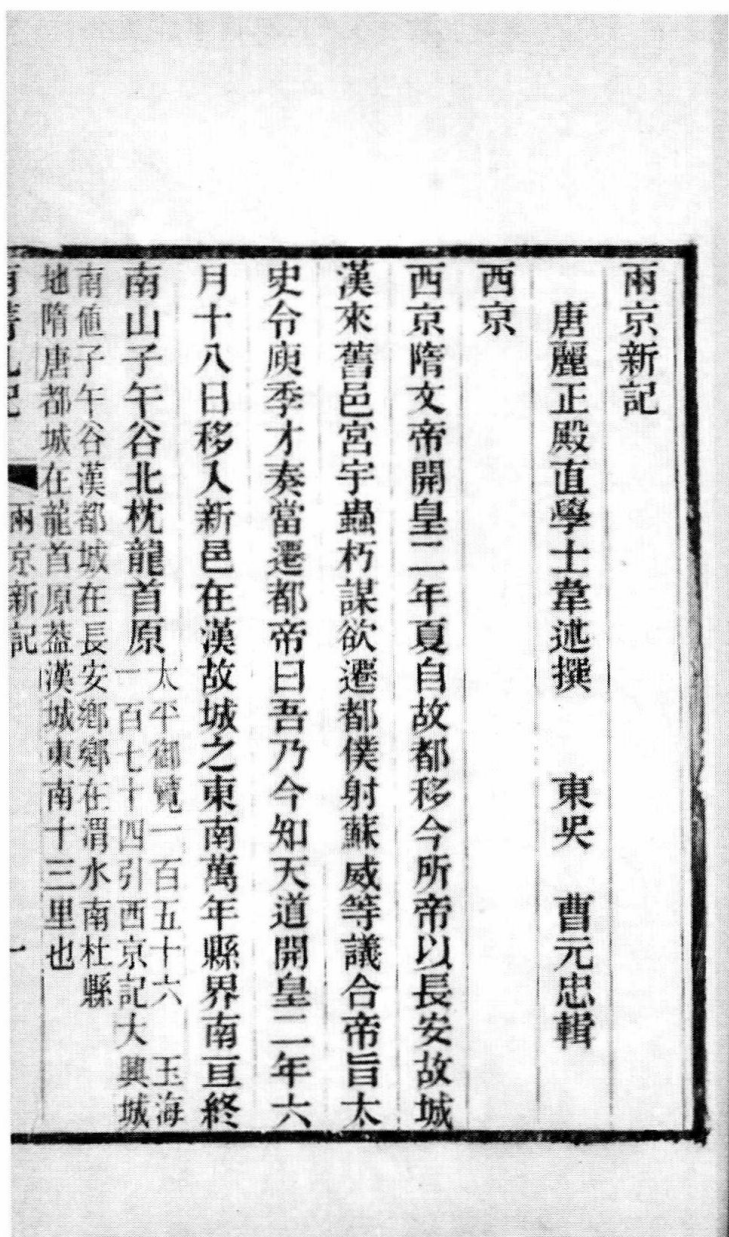 兩京新記
唐麗正殿直學士韋述撰　東吳　曹元忠輯
西京
西京隋文帝開皇二年夏自故都移今所帝以長安故城
漢來舊邑宮宇蟲朽謀欲遷都僕射蘇威等議合帝旨太
史令庾季才奏當遷都帝曰吾乃今知天道開皇二年六
月十八日移入新邑在漢故城之東南萬年縣界南亘終
南山子午谷北枕龍首原
太平御覽一百五十六　玉海
一百七十四引西京記大興城
南値子午谷漢都城在長安鄉鄉在渭水南杜縣
地隋唐都城在龍首原葢漢城東南十三里也
兩京新記
一